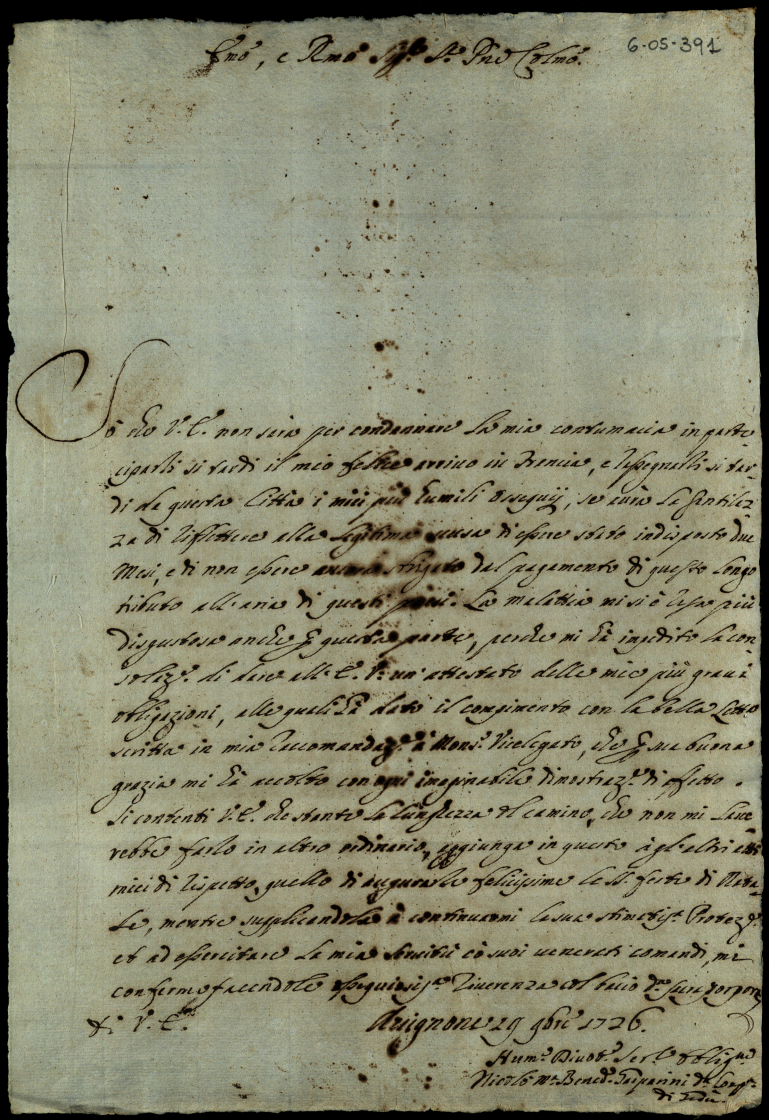 6-05-391
Emo, e Rmo Sigr. Sr. Pne Colmo.
Sò che V. E. non sarà per condannare la mia contumacia in parte
ciparli si tardi il mio felice arrivo in Francia, e rassegnarli si tar-
di da questa Città i miei più humili ossequij, se avrà la gentilez
za di riflettere alla legitima scusa di essere stato indisposto due
Mesi, e di non essere ancora sbrigato dal pagamento di questo longo
tributo all'aria di questi paesi. La malattia mi si è resa più
disgustosa anche p questa parte, perche mi hà impedito la con
solaze. di dare all'E. V. un' attestato delle mie più gravi
obligazioni, alle quali hà dato il compimento con la bella Lettra
scritta in mia raccomandaze. à Monsr. Vicelegato, che p sua buona
grazia mi hà accolto con ogni imaginabile dimostraze. di affetto.
Si contenti V. E. che stante la lunghezza del camino, che non mi lasce
rebbe farlo in altro ordinario, aggiunga in questo à gl'altri atti
miei di rispetto, quello di augurarle felicissime le SS. feste di Nata-
le, mentre supplicandola à continuarmi la sua stimatissa. Proteze.
et ad essercitare la mia servitù cò suoi venerati comandi, mi
confermo facendole ossequiosissa. riverenza col bacio della sacra porpora
Di V. E.
Avignone 29 9bre 1726.
Humo. Divotmo. Serre. obligmo
Nicolò Ma. Bened. Gasparini da. Compa.
di Giesù.